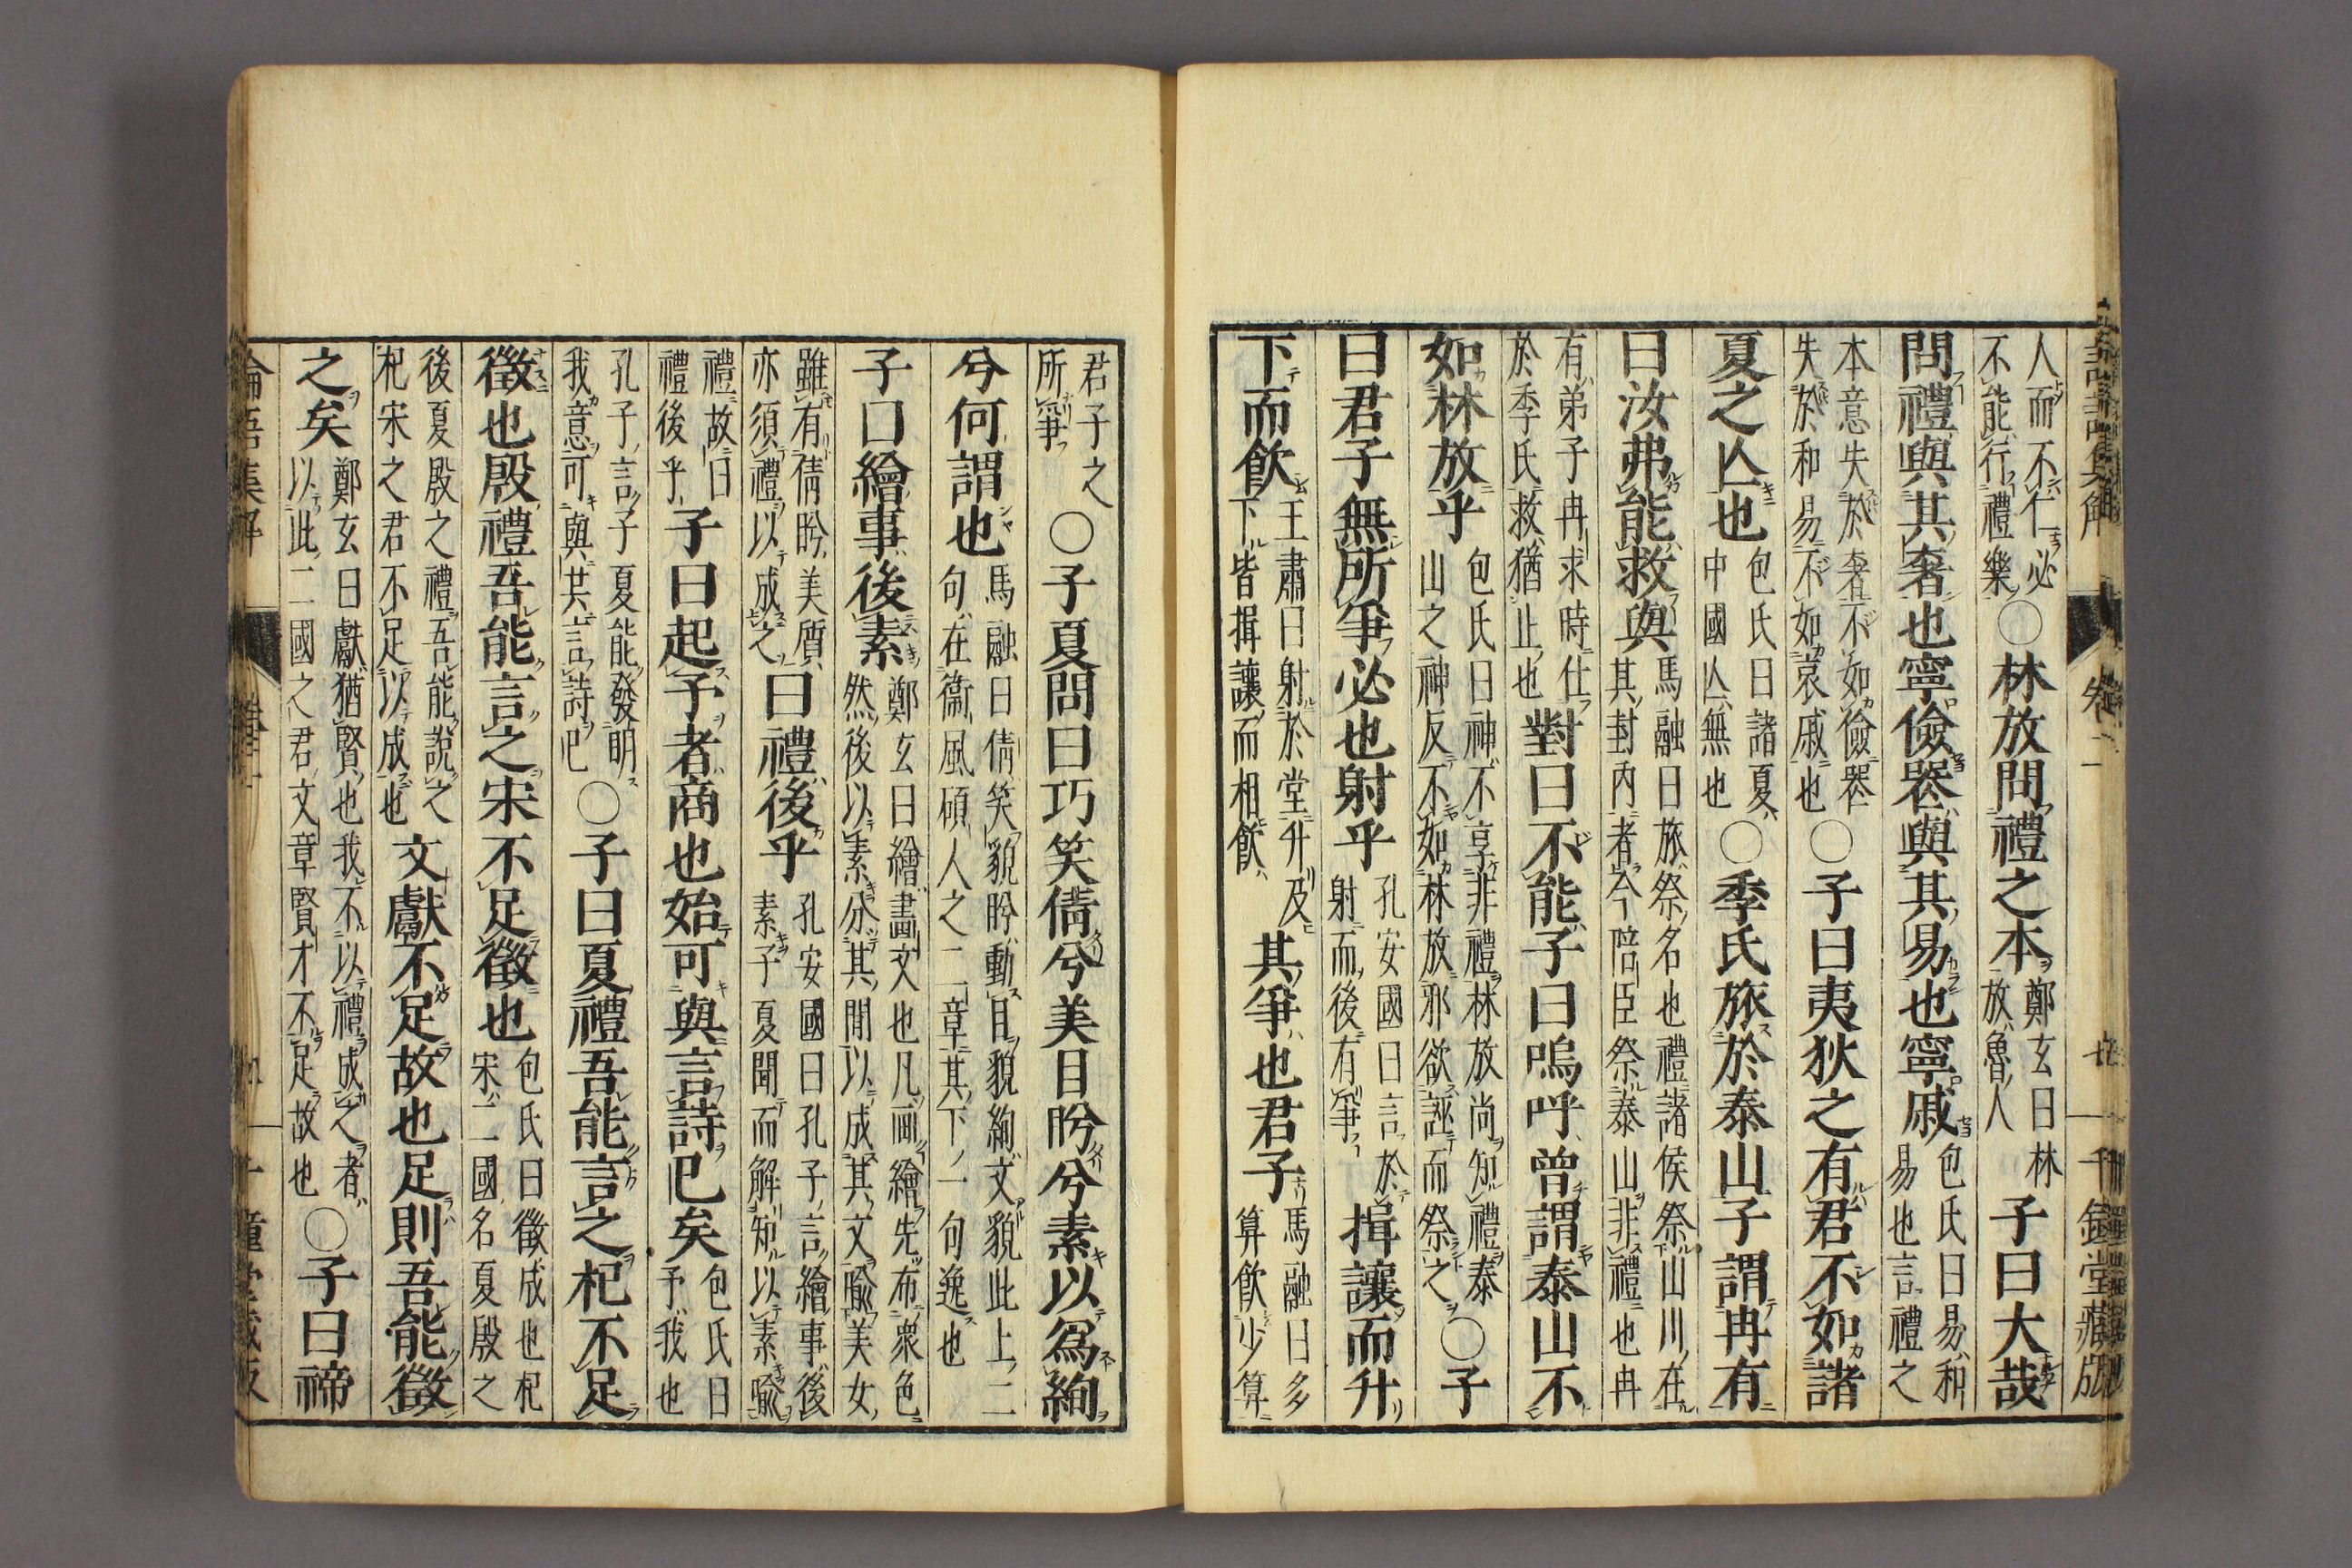 人而不仁必不能行禮樂○林放問禮之本鄭玄曰林放魯人子曰大哉
問禮與其奢也寧儉喪與其易也寧戚包氏曰易和易也言禮之
本意失於奢不如儉喪失於和易不如哀戚也○子曰夷狄之有君不如諸
夏之亾也包氏曰諸夏中國亾無也○季氏旅於泰山子謂冉有
曰汝弗能救與馬融曰旅祭名也禮諸侯祭山川在其封内者今陪臣祭泰山非禮也冉
有弟子冉求時仕於季氏救猶止也對曰不能子曰嗚呼曾謂泰山不
如林放乎包氏曰神不享非禮林放尚知禮泰山之神反不如林放邪欲誣而祭之○子
曰君子無所爭必也射乎孔安國曰言於射而後有爭揖讓而升
下而飲王肅曰射於堂升及下皆揖讓而相飲其爭也君子馬融曰多算飲少算
君子之所爭○子夏問曰巧笑倩兮美目盻兮素以爲絢
兮何謂也馬融曰倩笑貌盻動目貌絢文貌此上二句在衞風碩人之二章其下一句逸也
子曰繪事後素鄭玄曰繪畫文也凡画繪先布衆色然後以素分其間以成其文喩美女
雖有倩盻美質亦須禮以成之曰禮後乎孔安國曰孔子言繪事後素子夏聞而解知以素喩
禮故曰禮後乎子曰起予者商也始可與言詩已矣包氏曰予我也
孔子言子夏能發明我意可與共言詩已○子曰夏禮吾能言之杞不足
徵也殷禮吾能言之宋不足徵也包氏曰徵成也杞宋二國名夏殷之
後夏殷之禮吾能說之杞宋之君不足以成也文獻不足故也足則吾能徵
之矣鄭玄曰獻猶賢也我不以禮成之者以此二國之君文章賢才不足故也○子曰禘
論語集解